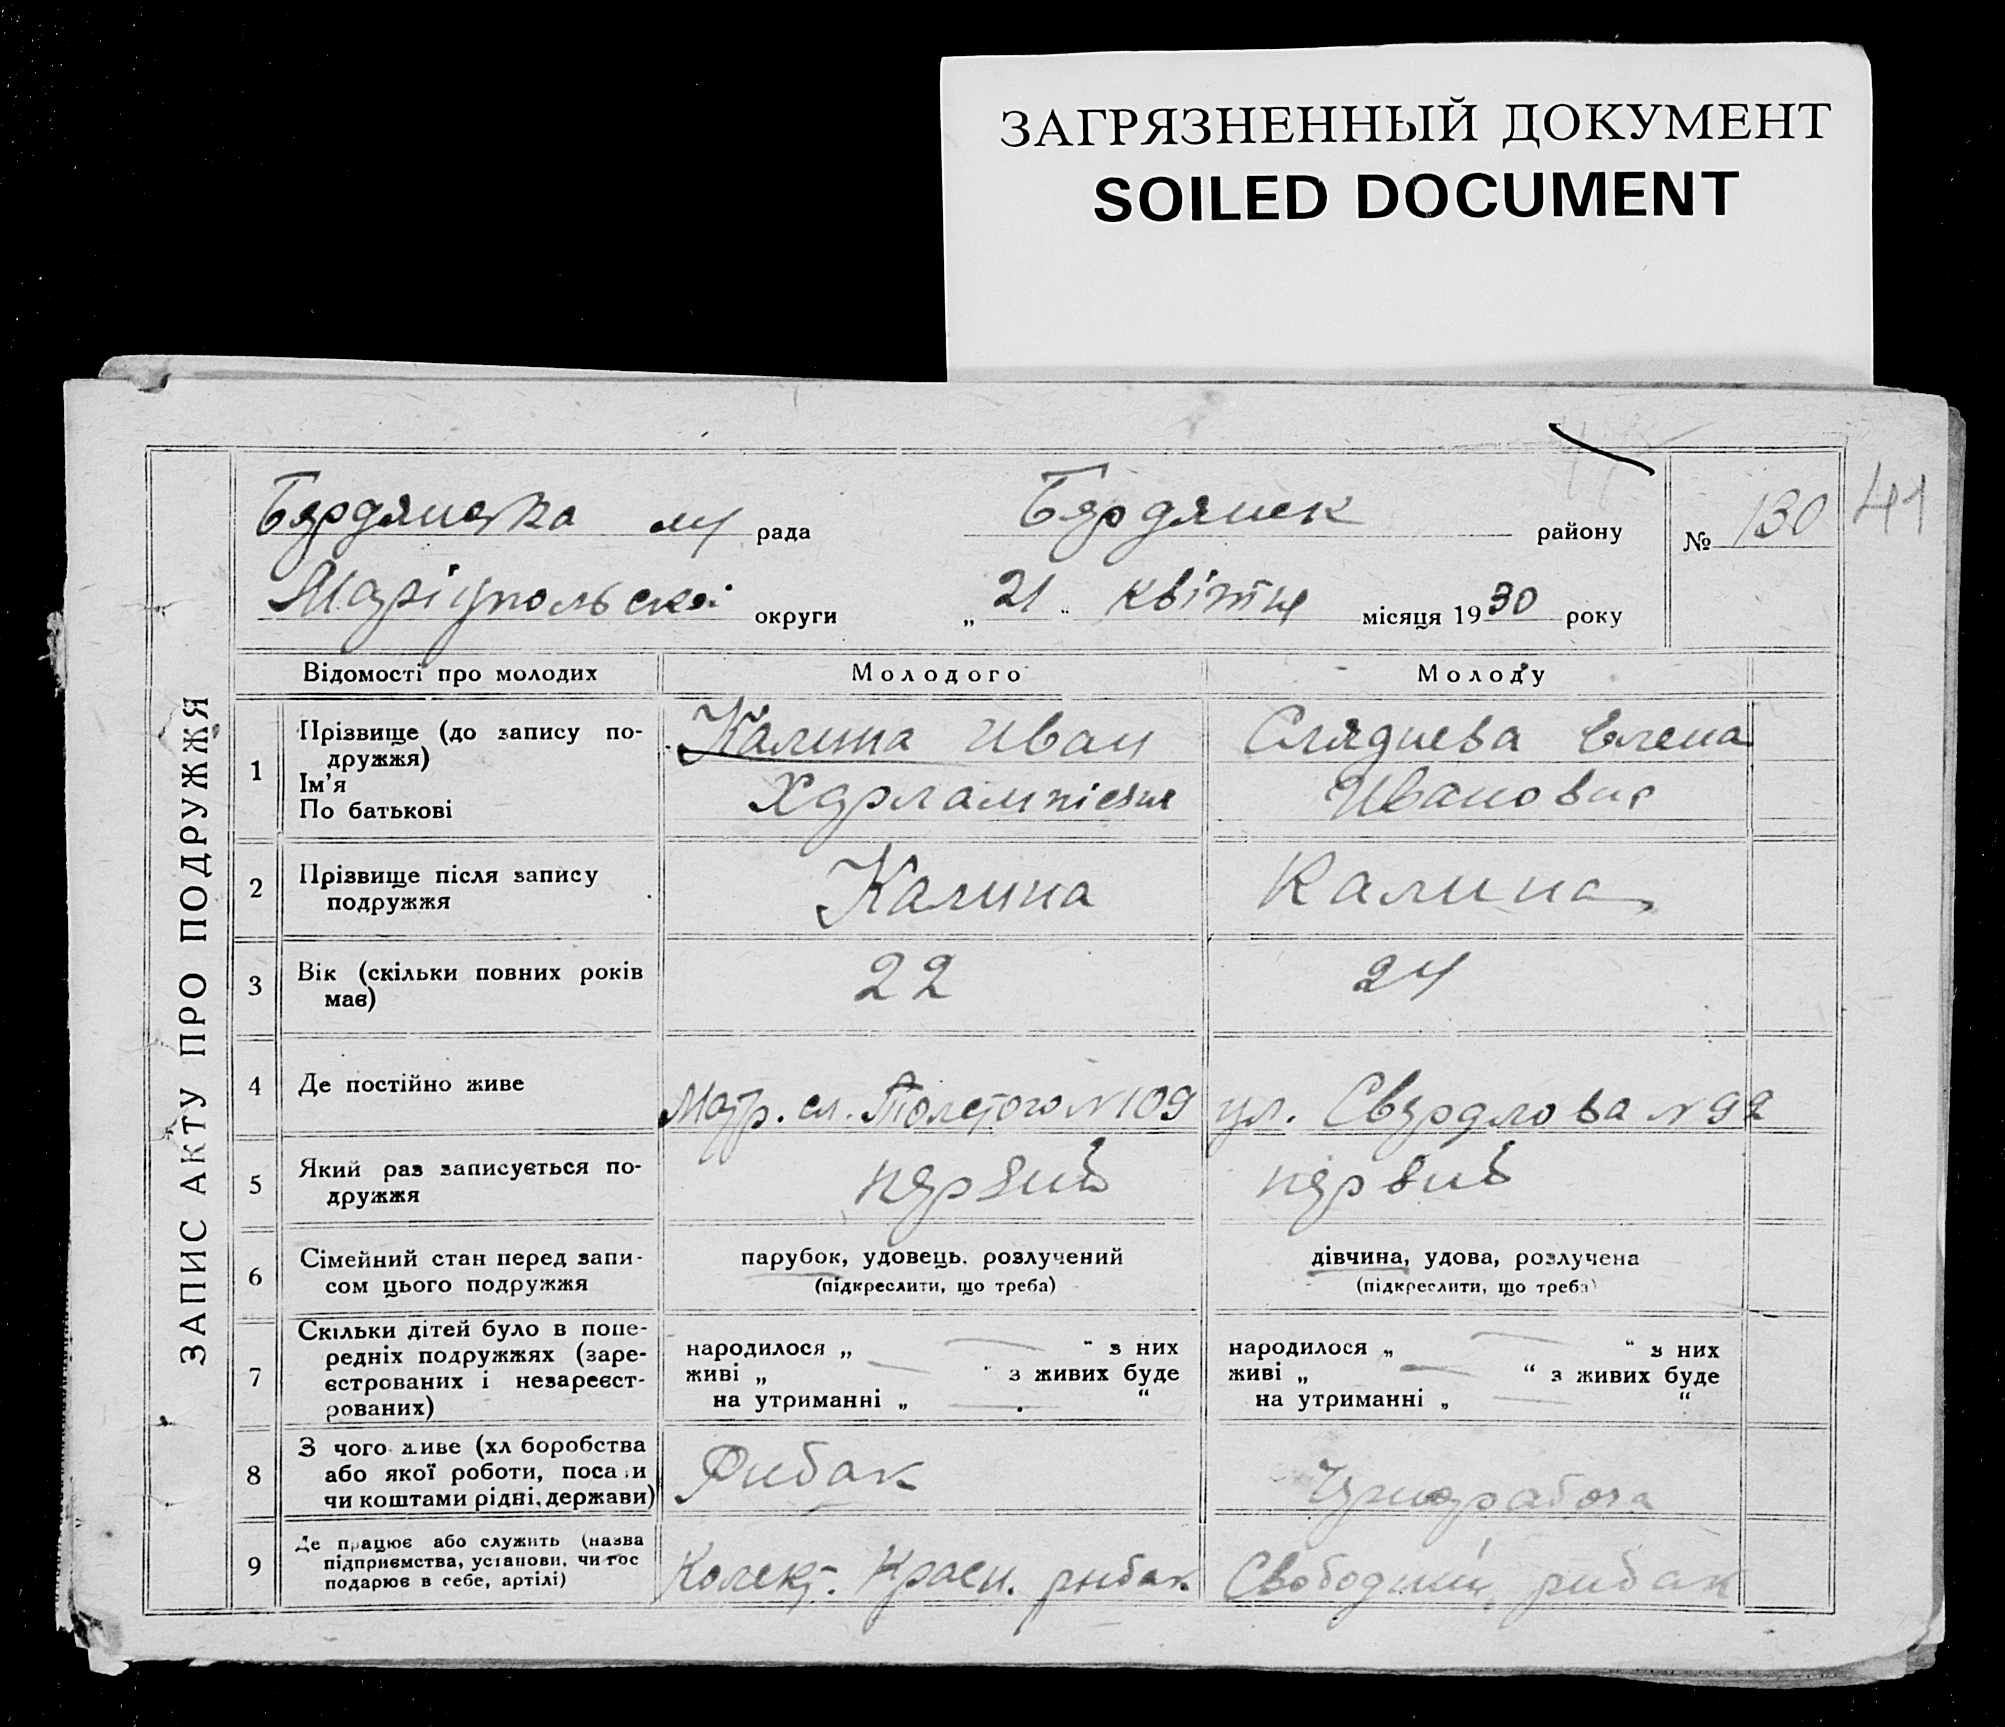 ЗАГРЯЗНЕННЫЙ ДОКУМЕНТ
SOILED DOCUMENT
ЗАПИС АКТУ ПРО ПОДРУЖЖЯ
Бердянська м рада Бердянск району № 130 41
Маріупольскої округи „21“ квітня місяця 1930 року
Відомості про молодих Молодого Молоду
1 Прізвище (до запису подружжя)
Ім’я
По батькові
Калина Иван
Харлампієвич
Елена
Ивановна
2 Прізвище після запису
подружжя
Калина Калина
3 Вік (скільки повних років
має)
22 24
4 Де постійно живе
Толстого № 109 ул. Свердлова № 92
5 Який раз записується по-
дружжя
первий первий
6 Сімейний стан перед запи-
сом цього подружжя
парубок, удовець, розлучений дівчина, удова, розлучена
(підкреслити, що треба) (підкреслити, що треба)
7 Скільки дітей було в попе-
редніх подружжях (заре-
єстрованих і незареєст-
рованих)
народилося „ — “ з них народилося „ — “ з них
живі „ — “ з живих буде живі „ — “ з живих буде
на утриманні „ — “ на утриманні „ — “
8 З чого живе (хліборобства
або якої роботи, посади
чи коштами рідні, держави)
Рибак Чернораб
9 Де працює або служить (назва
підприємства, установи, чи гос
подарює в себе, артілі)
Колект. Красн. рибак Свободний рибак